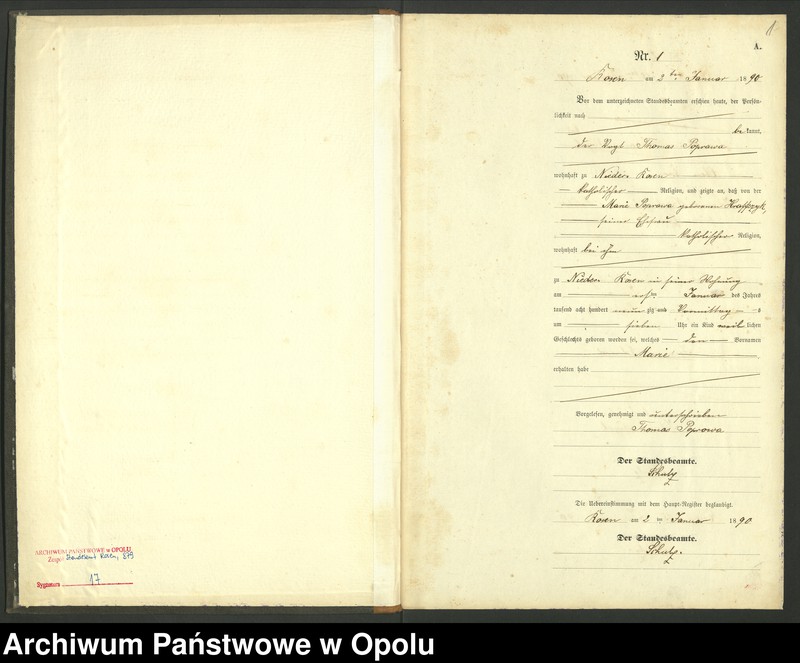 ARCHIWUM PAŃSTWOWE w OPOLU
Zespół Standesamt Rosen, 873
Sygnatura 17
1
A.
Nr. 1
Rosen am 2ten Januar 1890
Vor dem unterzeichneten Standesbeamten erschien heute, der Persön-
lichkeit nach
bekannt,
der Vogt Thomas Poprawa
wohnhaft zu Nieder Rosen
katholischer Religion, und zeigte an, daß von der
Marie Poprawa geborenen
seiner Ehefrau
katholischer Religion,
wohnhaft bei ihm
zu Nieder Rosen in seiner Wohnung
am ersten Januar des Jahres
tausend acht hundert neunzig und Vormittags
um sieben Uhr ein Kind weiblichen
Geschlechts geboren worden sei, welches den Vornamen
Marie
erhalten habe
Vorgelesen, genehmigt und unterschrieben
Thomas Poprawa
Der Standesbeamte.
Schulz
Die Uebereinstimmung mit dem Haupt-Register beglaubigt.
Rosen am 2ten Januar 1890
Der Standesbeamte.
Schulz.
Archiwum Państwowe w Opolu